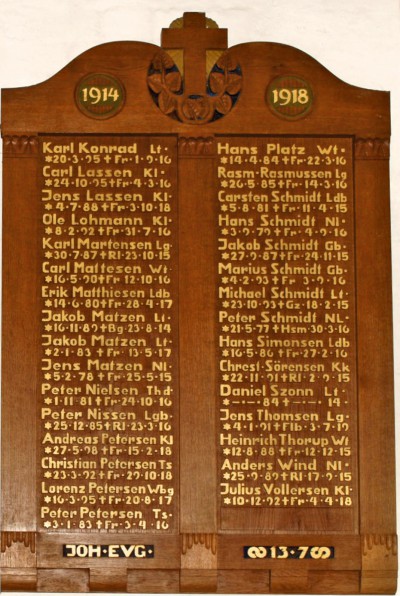 1914
1918
Karl Konrad Lt·
*20·3·95+Fr·1·9·16
Carl Lassen Kl·
*24·10·95+Fr·4·3·16
Jens Lassen Kl·
*4·7·88+Fr·3·10·18
Ole Lohmann Kl·
*8·2·92+Fr·31·7·16
Karl Martensen Lg·
*30·7·87+Rl·23·10·15
Carl Mattesen Wi·
*16·5·90+Fr·12·10·16
Erik Matthiesen Ldb
*14·6·80+Fr·28·4·17
Jakob Matzen Lt·
*16·11·89+Bg·23·8·14
Jakob Matzen Lt·
*2·1·83+Fr·13·5·17
Jens Matzen Nl·
*5·2·78+Fr·25·5·15
Peter Nielsen Thd·
*1·11·81+Fr·24·10·16
Peter Nissen Lgb·
*25·12·85+Rl·23·3·16
Andreas Petersen Kl
*27·5·98+Fr·15·2·18
Christian Petersen Ts
*23·3·92+Fr·29·10·18
Lorenz Petersen Wbg
*16·3·95+Fr·20·8·17
Peter Petersen Ts·
*3·1·83+Fr·3·4·16
Hans Platz Wt·
*14·4·84+Fr·22·3·16
Rasm·Rasmussen Lg
*26·5·85+Fr·14·3·16
Carsten Schmidt Ldb
*5·8·81+Fr·11·4·15
Hans Schmidt Nl·
*3·9·79+Fr·4·9·16
Jakob Schmidt Gb·
*27·9·87+Fr·24·11·15
Marius Schmidt Gb·
*4·2·93+Fr·3·9·16
Michael Schmidt Lt·
*23·10·93+Gz·18·2·15
Peter Schmidt NL·
*21·5·77+Hsm·30·3·16
Hans Simonsen Ldb
*16·5·86+Fr·27·2·16
Chresl·Sörensen Kk
*22·11·91+Rl·2·9·15
Daniel Szonn Lt·
*-·-·84+-·-·14·
Jens Thomsen Lg·
*4·1·91+Flb·3·7·19
Heinrich Thorup Wt
*12·8·88+Fr·12·12·15
Anders Wind Nl·
*25·9·89+Rl·17·9·15
Julius Vollersen Kl·
*10·12·92+Fr·4·4·18
JOH·EVG·
13·7